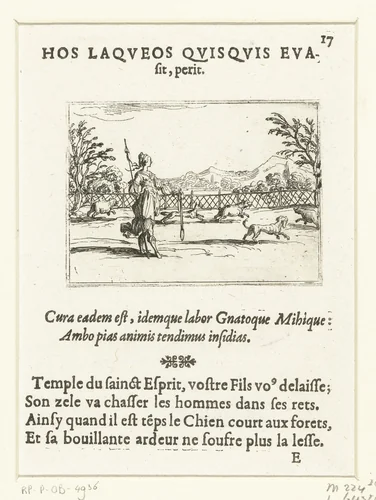 17
HOS LAQVEOS QVISQVIS EVA-
sit, perit.
Cura eadem est, idemque labor Gnatoque Mihique:
Ambo pias animis tendimus insidias.
Temple du sainct Esprit, vostre Fils voꝰ delaisse;
Son zele va chasser les hommes dans ses rets.
Ainsy quand il est tẽps le Chien court aux forets,
Et sa bouillante ardeur ne soufre plus la lesse.
E
RP-P-OB-4936